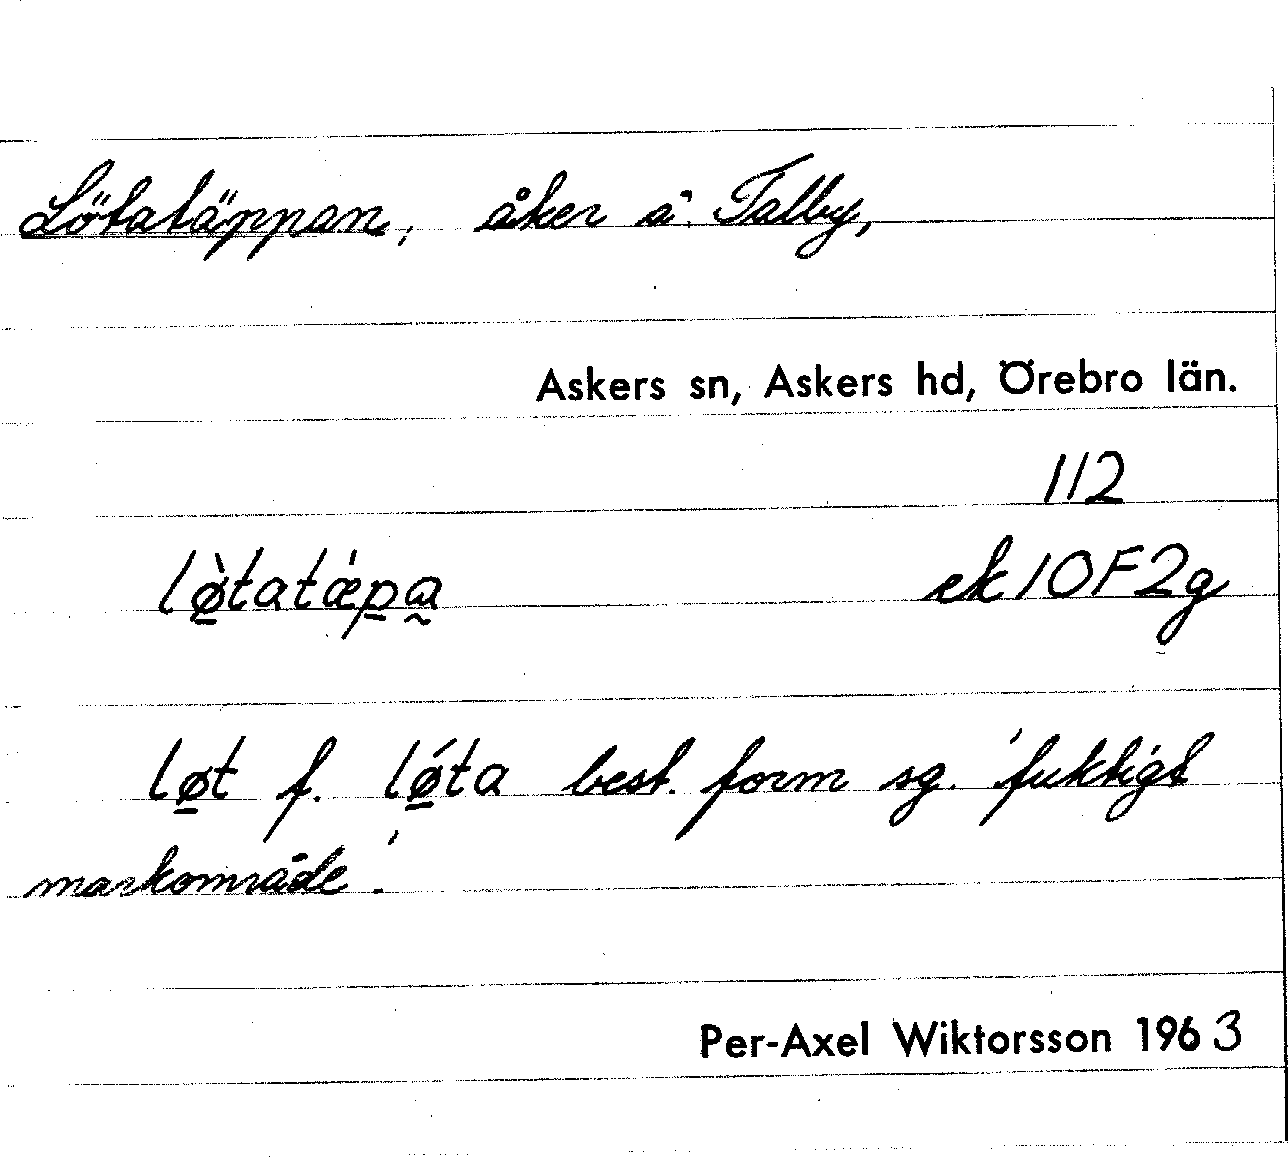 Lötatäppan, åker å Talby,
Askers sn, Askers hd, Örebro län.
112
lø̠̀tatǽp̠a̰ ek 10F2g
lø̠t f. lǿ̠ta best. form sg. 'fuktigt
markområde'.
Per-Axel Wiktorsson 1963